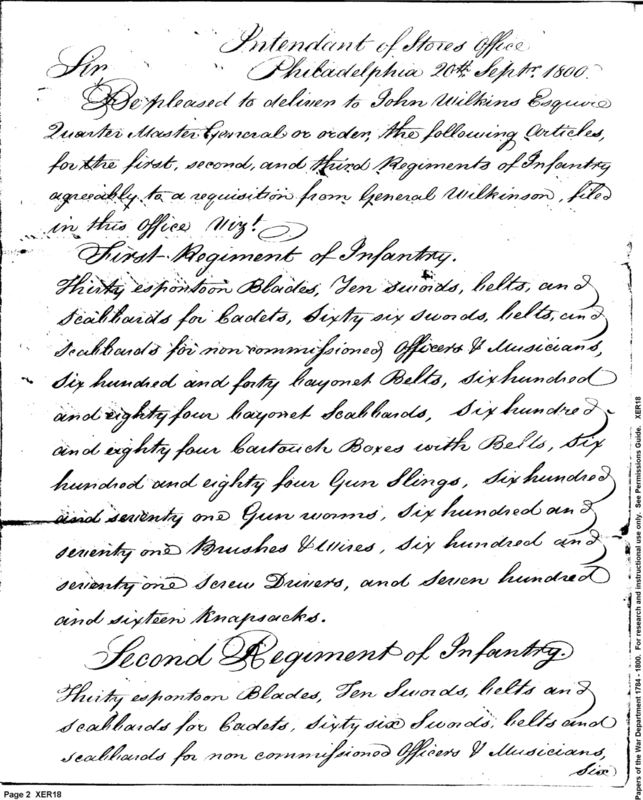 Intendant of Stores Office
Sir Philadelphia 20th Septr. 1800.
Be pleased to deliver to John Wilkins Esquire
Quarter Master General or order, the following Articles,
for the first, second, and third Regiments of Infantry
agreeably to a requisition from General Wilkinson, filed
in this Office Vizt.
First Regiment of Infantry.
Thirty espontoon Blades, Ten swords, belts, and
scabbards for Cadets, Sixty six swords, belts, and
scabbards for non commissioned Officers & Musicians,
six hundred and forty bayonet Belts, six hundred
and eighty four bayonet Scabbards, Six hundred
and eighty four Cartouch Boxes with Belts, Six
hundred and eighty four Gun Slings, six hundred
and seventy one Gun worms, six hundred and
seventy one Brushes & Wires, six hundred and
seventy one Screw Drivers, and Seven hundred
and sixteen Knapsacks.
Second Regiment of Infantry.
Thirty espontoon Blades, Ten Swords, belts and
scabbards for Cadets, sixty six Swords, belts and
scabbards for non commissioned Officers & Musicians,
six
Page 2 XER18
Papers of the War Department 1784 - 1800. For research and instructional use only. See Permissions Guide. XER18